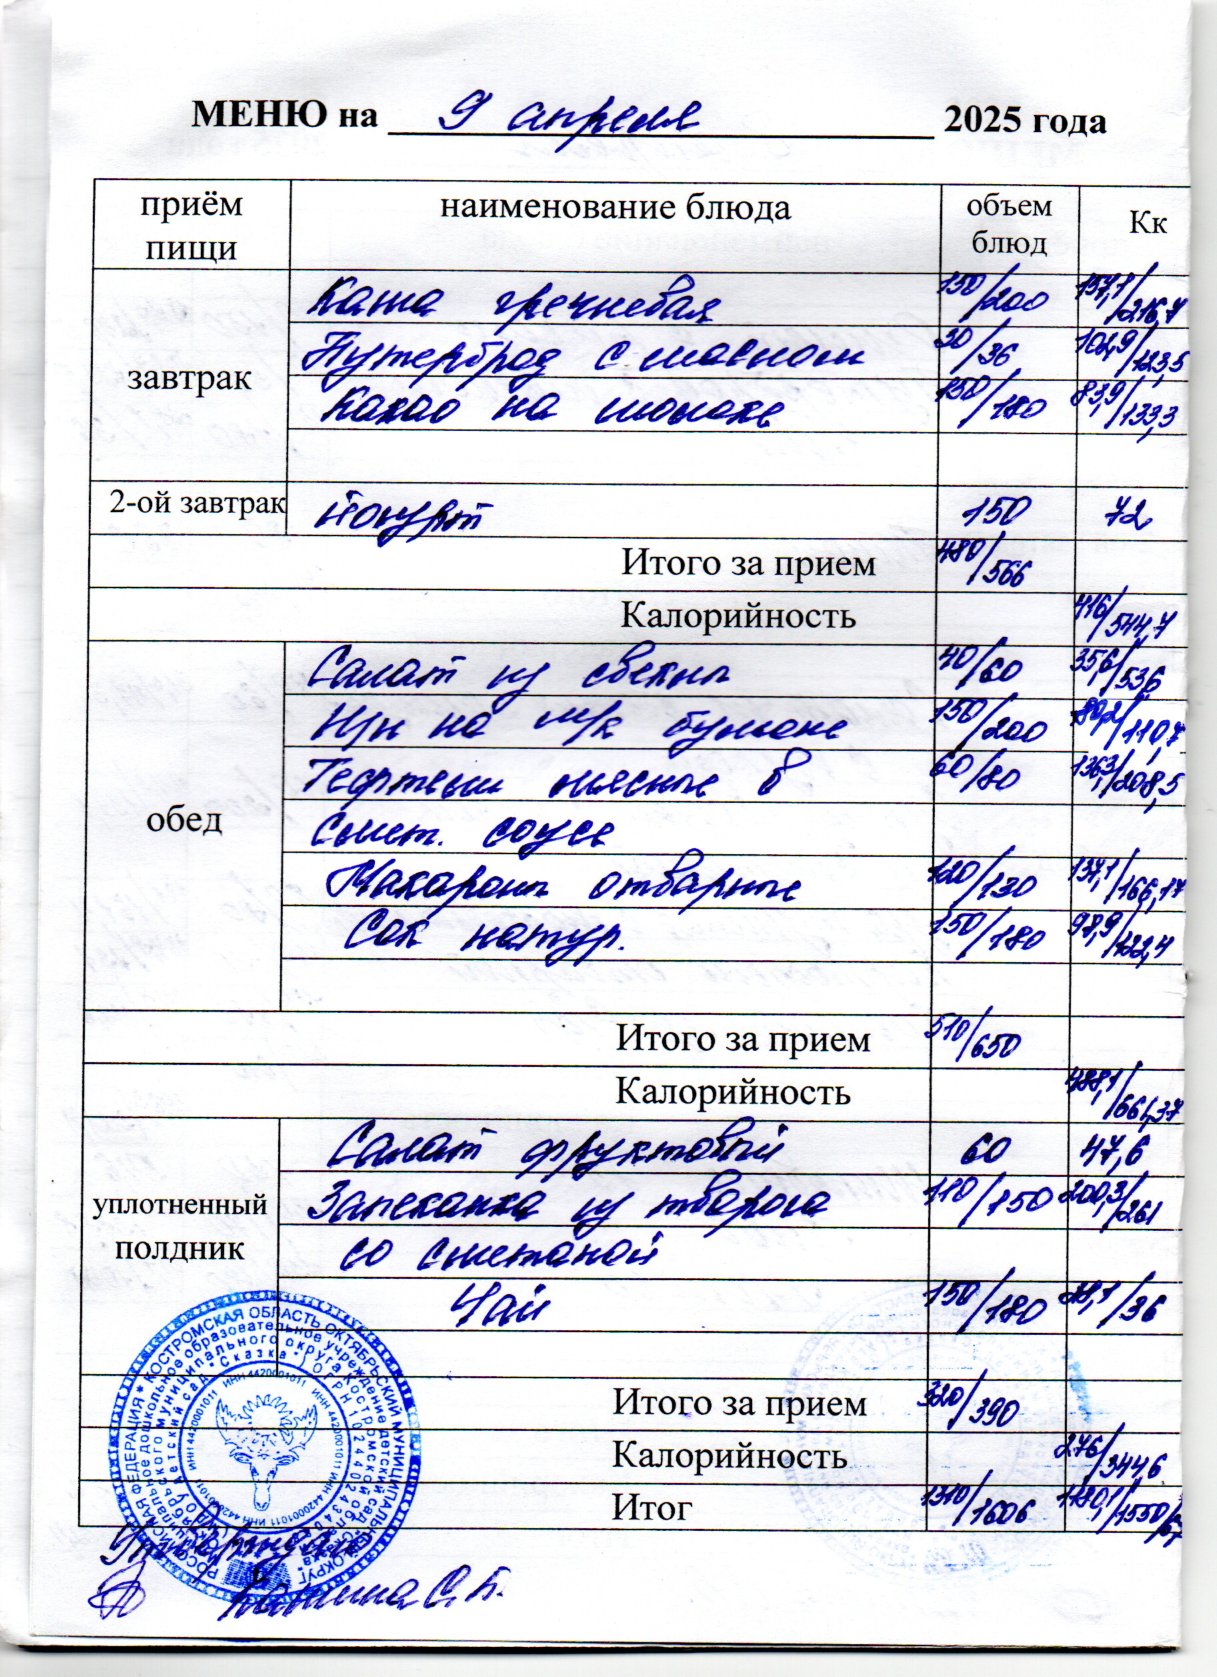 МЕНЮ на 9 апреля 2025 года
приём пищи наименование блюда объем блюд Кк
завтрак
Каша гречневая 150/200 157,1/216,7
Бутерброд с маслом 30/36 102,9/123,5
Какао на молоке 150/180 83,9/133,3
2-ой завтрак Йогурт 150 72
Итого за прием 480/566
Калорийность 416/544,7
обед
Салат из свеклы 40/60 35,6/53,6
на м/к бульоне 150/200 80,2/110,7
Тефтели мясные в 60/80 136,3/208,5
смет. соусе
Макароны отварные 120/130 137,1/166,17
Сок натур. 150/180 98,9/122,4
Итого за прием 510/650
Калорийность 488,1/661,37
уплотненный полдник
Салат фруктовый 60 47,6
Запеканка из творога 110/150 200,3/261
со сметаной
Чай 150/180 28,1/36
Итого за прием 320/390
Калорийность 276/344,6
Итог 1310/1606 1180,1/1550,67
РОССИЙСКАЯ ФЕДЕРАЦИЯ * КОСТРОМСКАЯ ОБЛАСТЬ ОКТЯБРЬСКИЙ МУНИЦИПАЛЬНЫЙ ОКРУГ
ИНН 4420001011